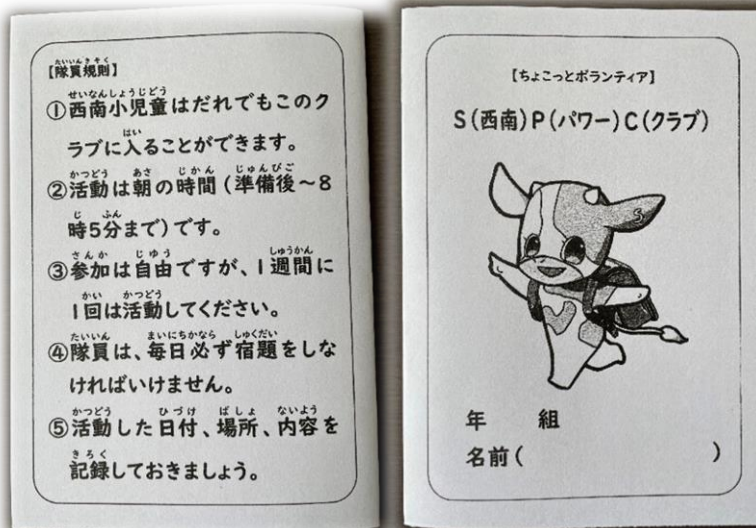 【隊員規則】
①西南小児童はだれでもこのク
ラブに入ることができます。
②活動は朝の時間(準備後～8
時5分まで)です。
③参加は自由ですが、1週間に
1回は活動してください。
④隊員は、毎日必ず宿題をしな
ければいけません。
⑤活動した日付、場所、内容を
記録しておきましょう。
【ちょこっとボランティア】
S(西南)P(パワー)C(クラブ)
年 組
名前( )